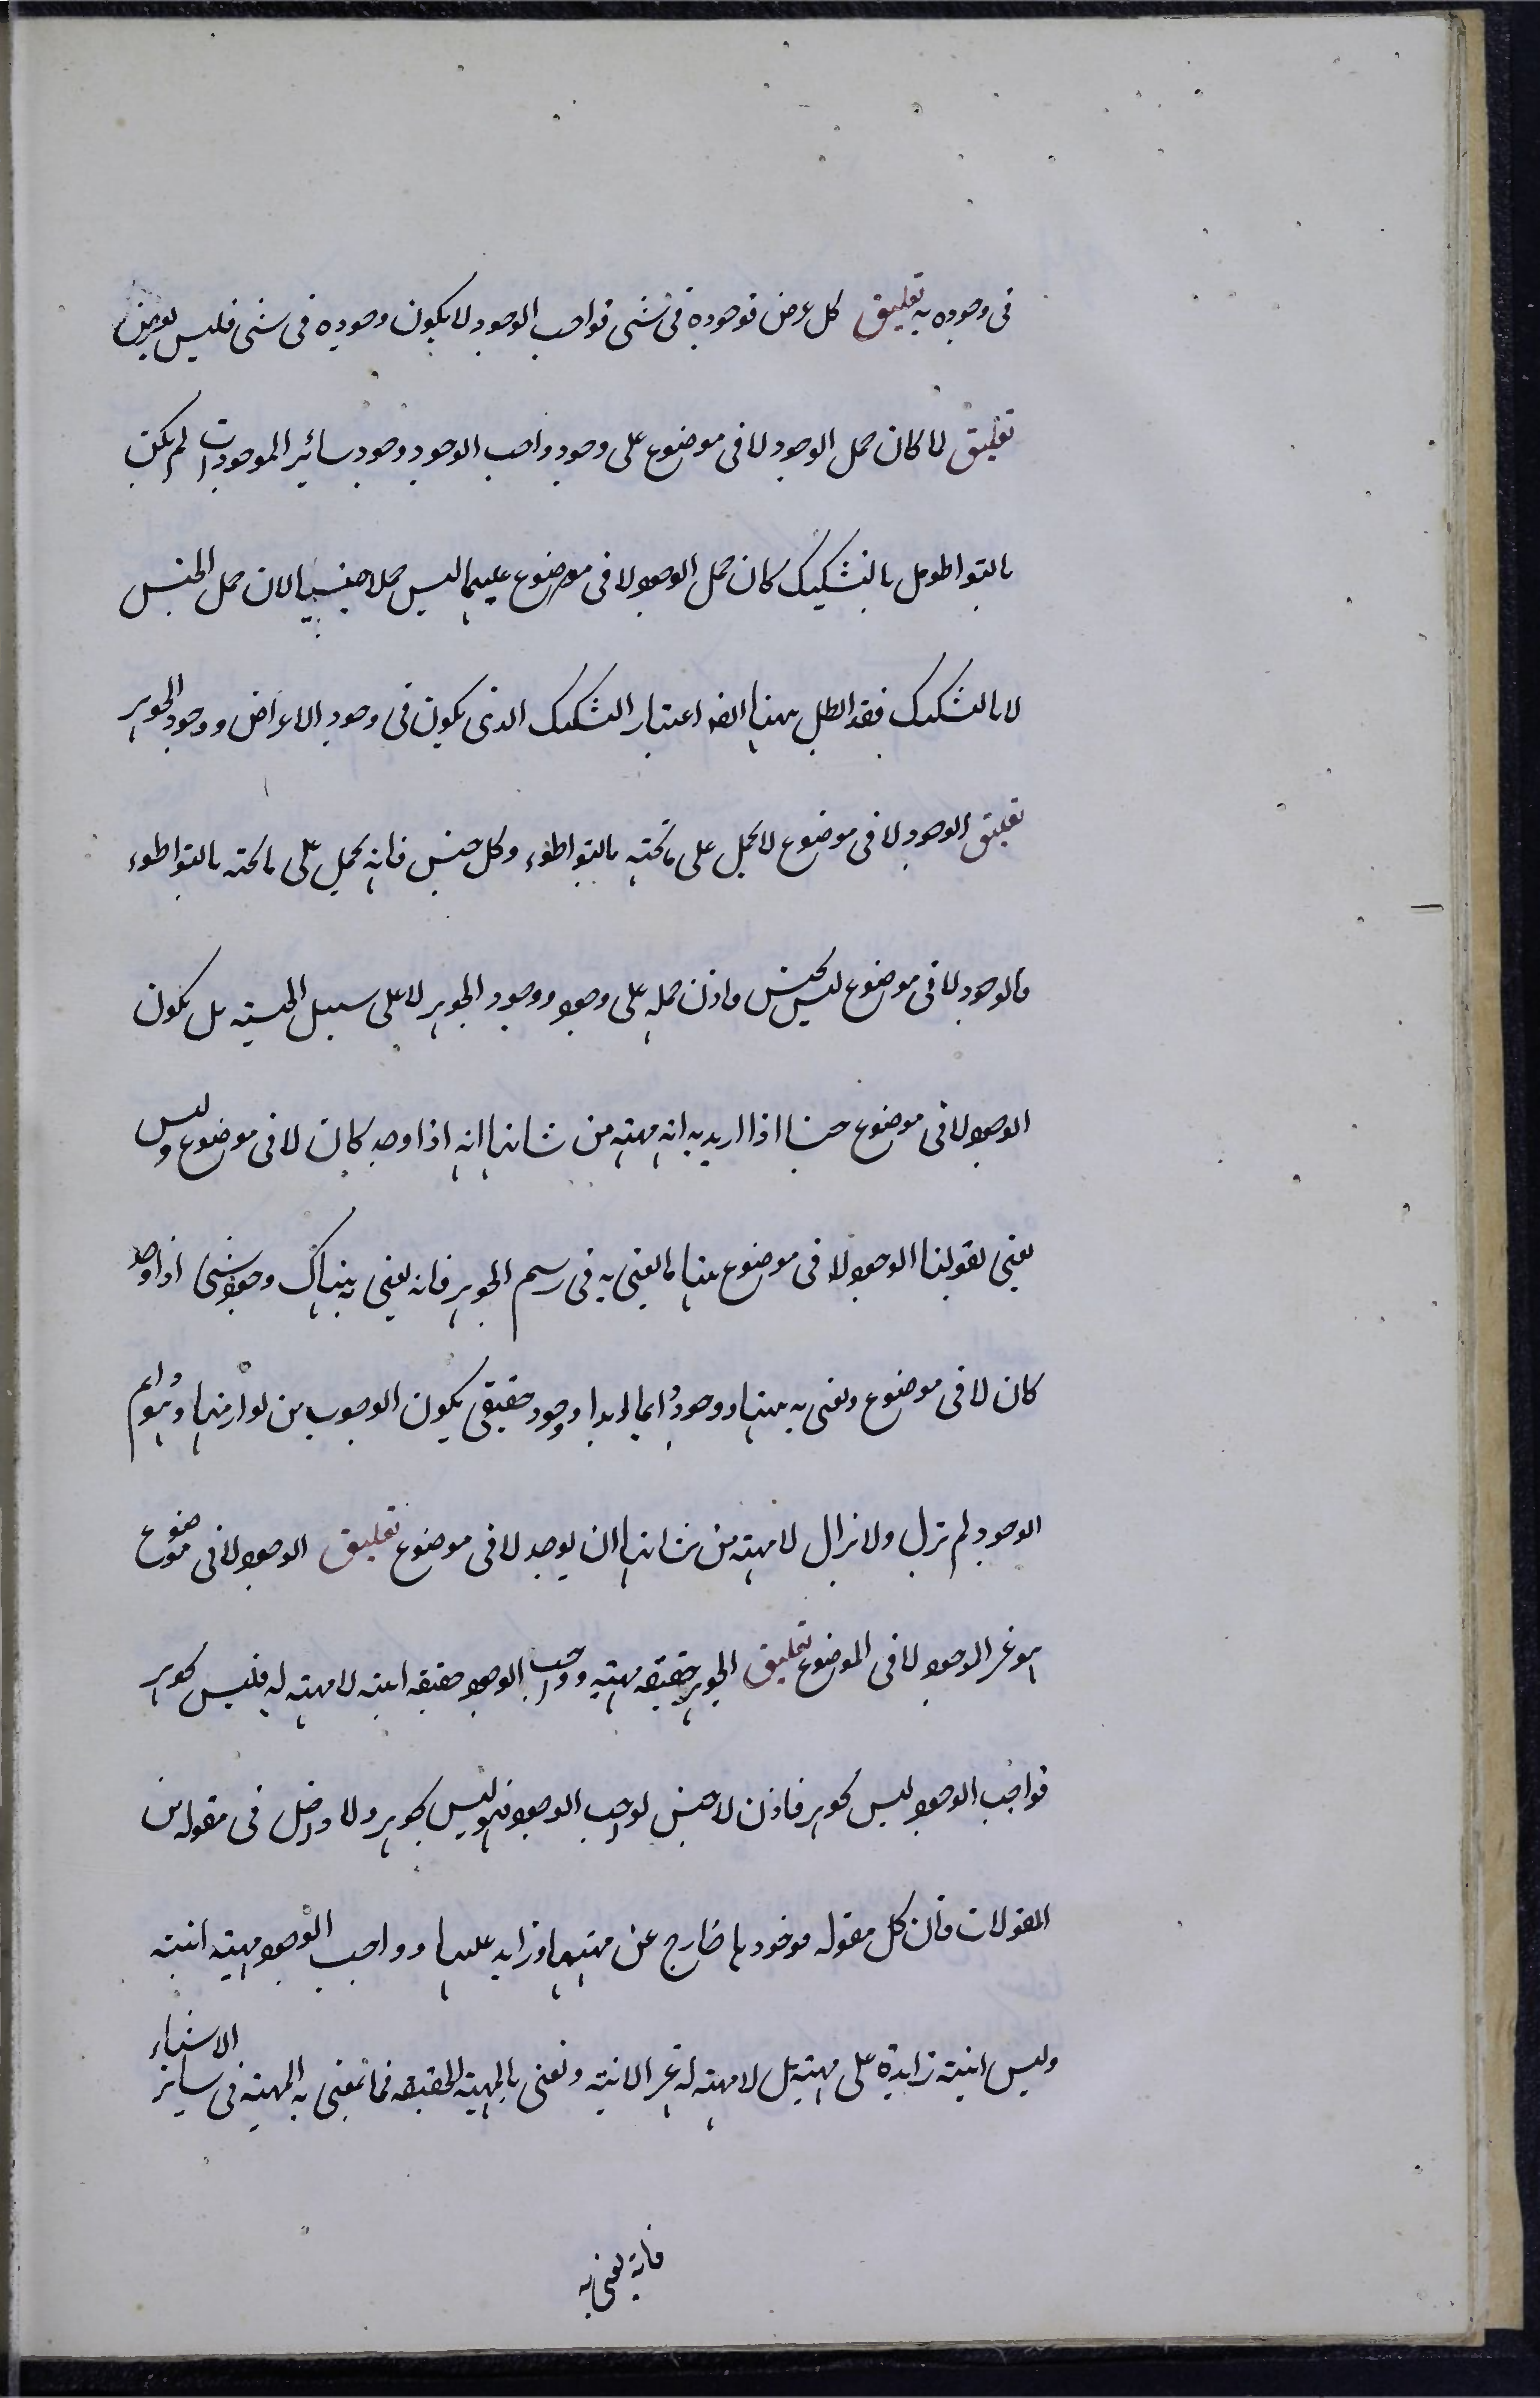 فى وجوده به تعليق كل عرض فوجوده فى شى فواجب الوجود لا يكون وجوده فى شى فليس بعرض
تعليق لما كان حمل الوجود لا فى موضوع على وجود واجب الوجود وجود سائر الموجودات لم يكن
بالتواطو بل بالتشكيك كان حمل الوجود لا فى موضوع عليهما ليس حملا جنسيا لان حمل الجنس
لا بالتشكيك فقد ابطل بهذا ايضا اعتبار التشكيك الذى يكون فى وجود الاعراض ووجود الجوهر
تعليق الوجود لا فى موضوع لا يحمل على ما تحته بالتواطوء وكل جنس فانه يحمل على ما تحته بالتواطوء
فالوجود لا فى موضوع ليس بجنس فاذن حمله على وجود ووجود الجوهر لا على سبيل الجنسيه بل يكون
الوجود لا فى موضوع جنسا اذا اريد به انه مهيته من شانها انه اذا وجد كان لا فى موضوع وليس
يعنى بقولنا الوجود لا فى موضوع هنا ما يعنى به فى رسم الجوهر فانه يعنى به هناك وجود شى اذا وجد
كان لا فى موضوع ونعنى به هنا ووجود دايما ابدا وجود حقيقى يكون الوجوب من لوازمها وهو دايم
الوجود لم تزل ولا نزال لا مهيته من شانها ان يوجد لا فى موضوع تعليق الوجود لا فى موضوع
هو غير الوجود لا فى الموضوع تعليق الجوهر حقيقه مهيته وواجب الوجود حقيقه انيته لا مهيته له فليس بجوهر
فواجب الوجود ليس بجوهر فاذن لا جنس لواجب الوجود فهو ليس بجوهر ولا داخل فى مقوله من
المقولات فان كل مقوله فوجودها خارج عن مهيتها وزايد عليها وواجب الوجود مهيته انيته
وليس انيته زايدة على مهيته بل لا مهيته له غير الانيته ونعنى بالمهيته الحقيقه فما نعنى به المهيته فى ساير الاشياء
فانه نعنى به